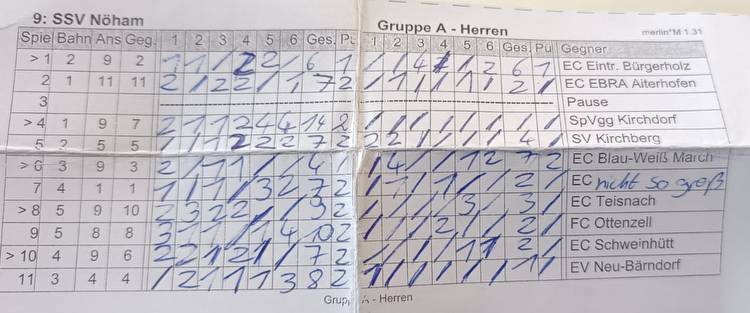 9: SSV Nöham Gruppe A - Herren merlin®M 1.31
Spie Bahn Ans Geg. 1 2 3 4 5 6 Ges. Pu 1 2 3 4 5 6 Ges. Pu Gegner
> 1 2 9 2 1 1 / 2 2 / 6 1 / / 4 1 / 2 6 1 EC Eintr. Bürgerholz
2 1 11 11 2 / 2 2 / 1 7 2 / 1 / / 1 / 2 / EC EBRA Aiterhofen
3 Pause
> 4 1 9 7 2 1 1 2 4 4 14 2 / / / / / / / / SpVgg Kirchdorf
5 2 5 5 / 1 / 2 2 2 7 2 2 2 / / / / 4 / SV Kirchberg
> 6 3 9 3 2 / 1 1 / / 4 / / 4 / / 1 2 7 2 EC Blau-Weiß March
7 4 1 1 1 / 1 / 3 2 7 2 / 1 / 1 / / 2 / EC nicht so groß
> 8 5 9 10 2 3 2 2 / / 9 2 / / / / 3 / 3 / EC Teisnach
9 5 8 8 3 1 1 / 1 4 10 2 / / / 2 / / 2 / FC Ottenzell
> 10 4 9 6 2 2 1 2 / / 7 2 / / / / 1 1 2 / EC Schweinhütt
11 3 4 4 / 2 1 1 1 3 8 2 1 / / / / / 1 / EV Neu-Bärndorf
Grup A - Herren